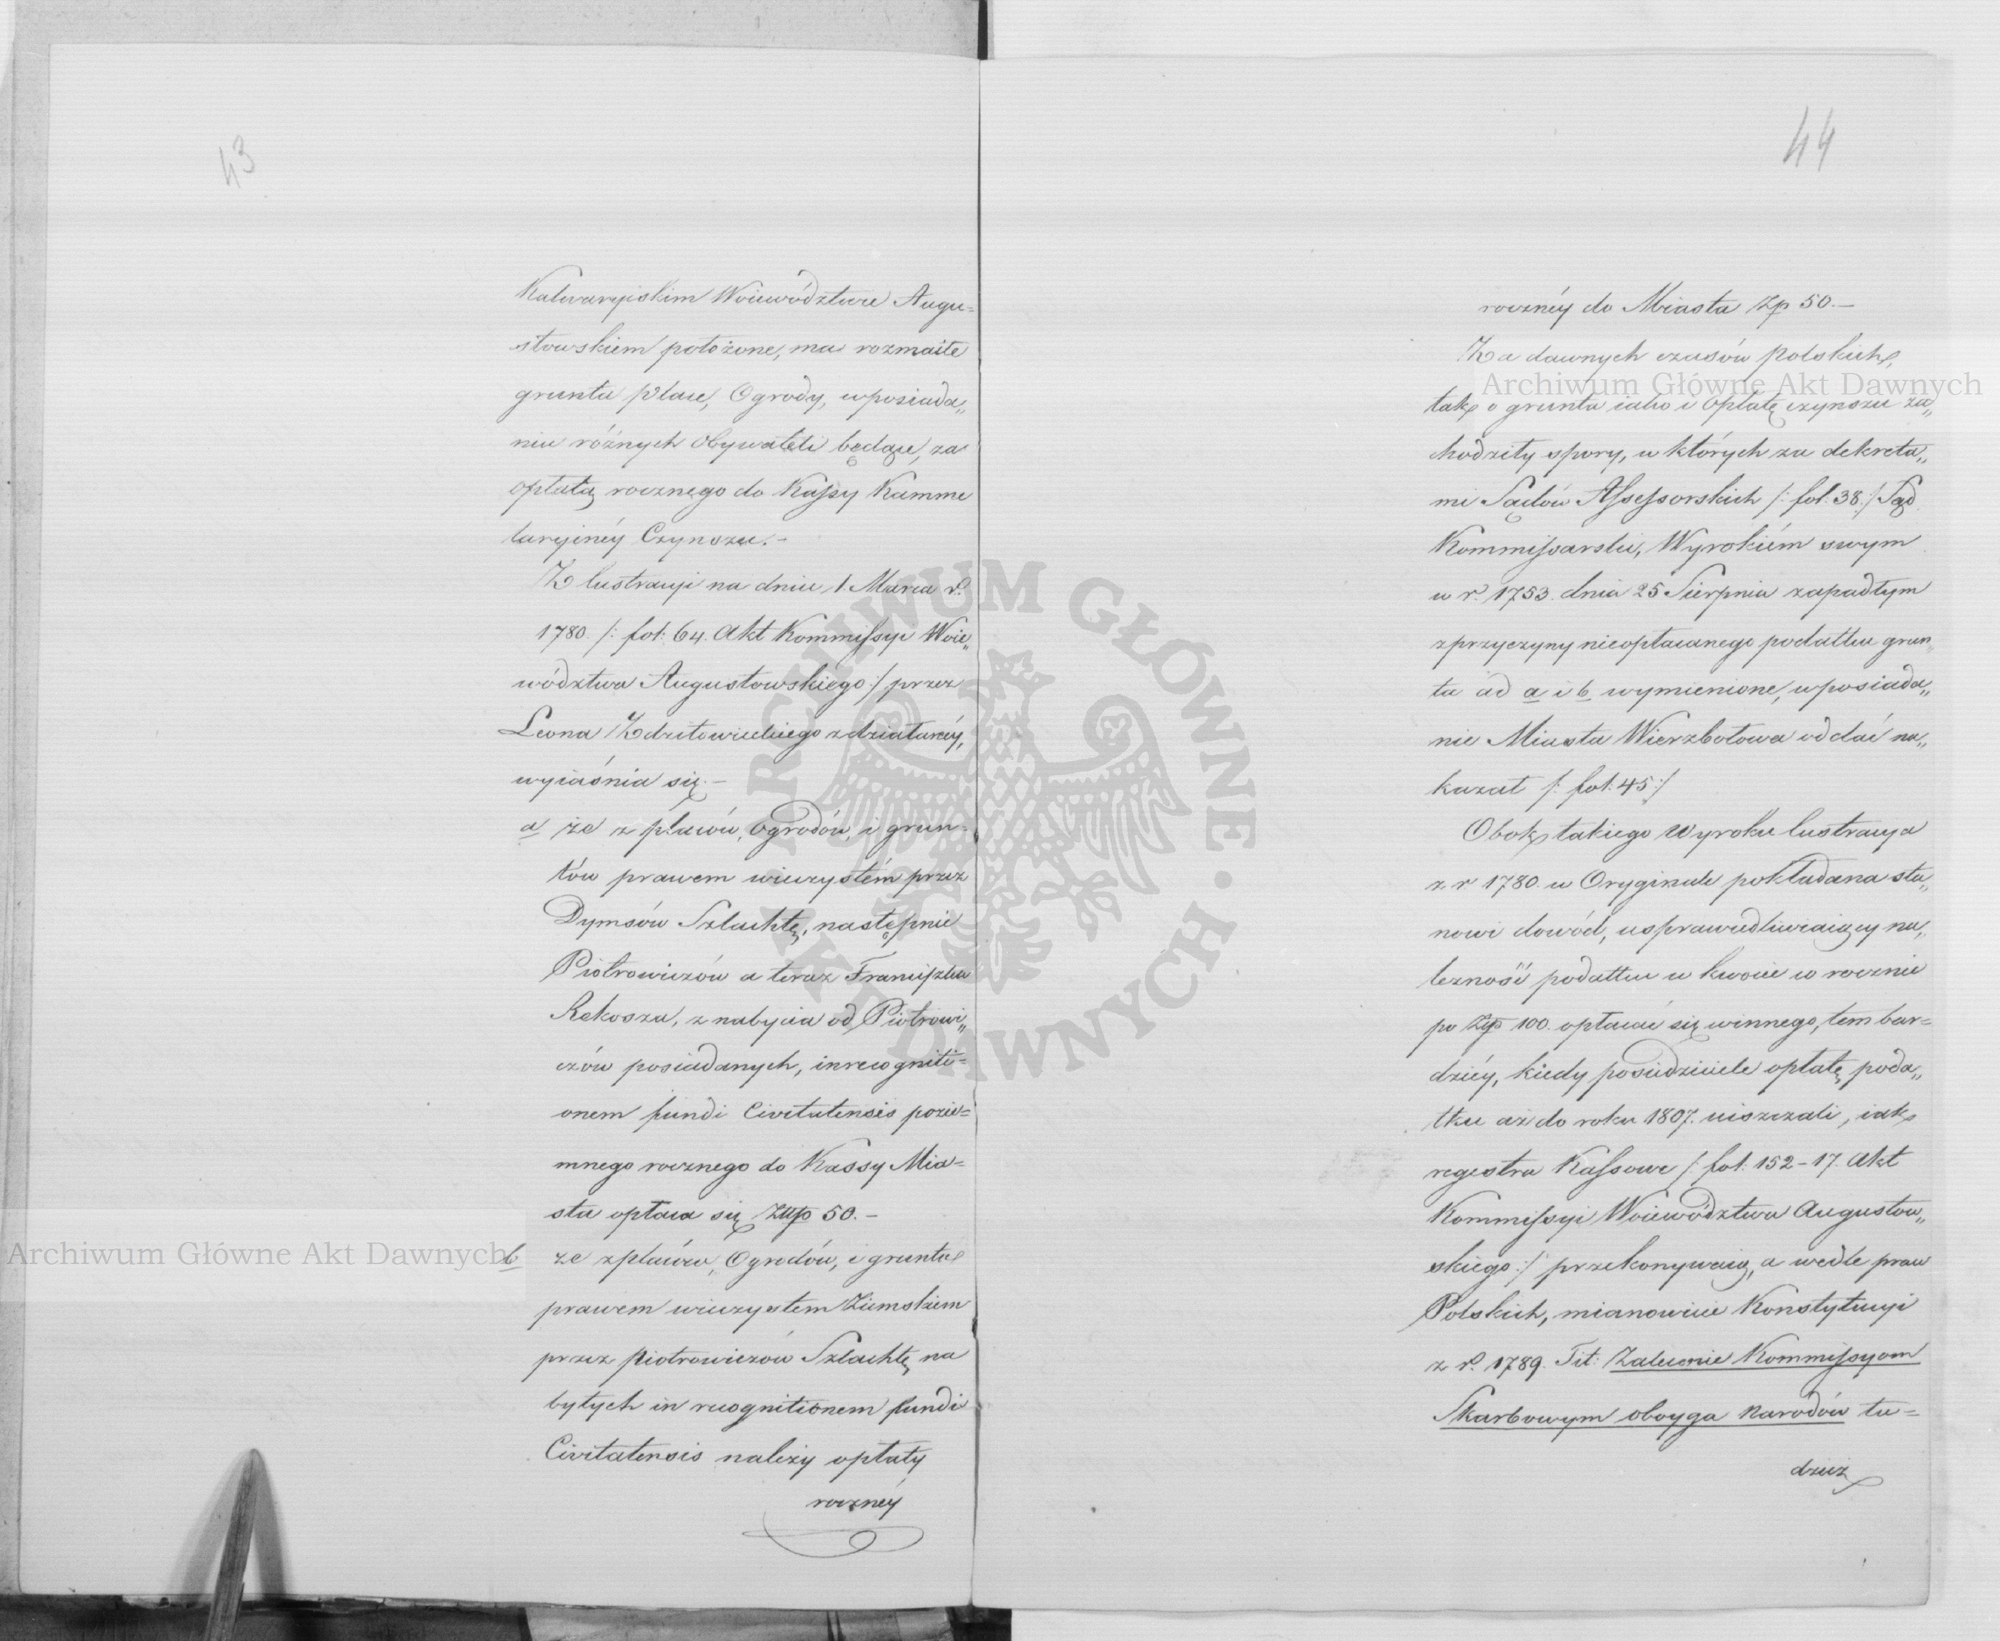 43
Kalwaryiskim Woiewództwie Augu=
stowskiem położone, ma rozmaite
grunta place, Ogrody, w posiada„
niu różnych Obywateli będące, za
opłatą rocznego do Kassy Kamme
laryinéy Czynszu.-
Z lustracyi na dniu 1 Marca r.
1780. /: fol: 64. Akt Kommissyi Woie„
wództwa Augustowskiego :/ przez
Leona Zdzitowieckiego zdziałanéy,
wyiaśnia się.-
a że z placów, Ogrodów, i grun-
tów prawem wieczystém przez
Dymsów Szlachtę, następnie
Piotrowiczów a teraz Franciszka
Rekosza, z nabycia od Piotrowi„
czów posiadanych, in recogniti=
onem fundi Civitatensis pozie=
mnego rocznego do Kassy Mia=
sta opłaca się Złłp 50.-
b że z placów, Ogrodów, i gruntu
prawem wieczystem Ziemskiem
przez Piotrowiczów Szlachtę na
bytych in recognitionem fundi
Civitatensis należy opłaty
rocznéy
44
rocznéy do Miasta Złp 50.-
Za dawnych czasów Polskich,
tak o grunta iako i Opłatę czynszu za„
chodziły spory, w których za dekreta„
mi Sądów Assessorskich /: fol: 38 :/ Sąd
Kommissarski, Wyrokiem swym
w r. 1753 dnia 25 Sierpnia zapadłym
z przyczyny nieopłacanego podatku grun
ta ad a i b wymienione, w posiada„
nie Miasta Wierzbołowa oddać na„
kazał /: fol: 45 :/
Obok takiego Wyroku lustracya
z r 1780. w Oryginale pokładana sta„
nowi dowód, usprawiedliwiaiący na„
leżność podatku w kwocie w rocznie
po Złp 100. opłacać się winnego, tem bar=
dziéy, kiedy posiedziciele opłatę poda„
tku aż do roku 1807. uiszczali, iak
regestra Kassowe /: fol: 152-17. Akt
Kommissyi Woiewództwa Augustow„
skiego :/ przekonywaią, a wedle praw
Polskich, mianowicie Konstytucyi
z r. 1789. Tit: Zalecenie Kommissyom
Skarbowym oboyga Narodów tu=
dzież
Archiwum Główne Akt Dawnych
Archiwum Główne Akt Dawnych
ARCHIWUM GŁÓWNE AKT DAWNYCH